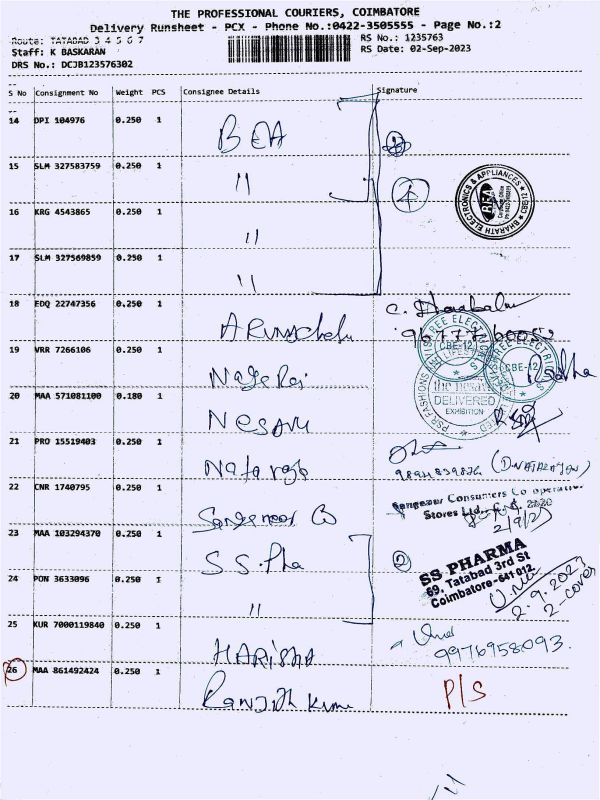 THE PROFESSIONAL COURIERS, COIMBATORE
Delivery Runsheet - PCX - Phone No.:0422-3505555 - Page No.:2
Route: TATABAD 3 4 5 6 7
RS No.: 1235763
Staff: K BASKARAN
RS Date: 02-Sep-2023
DRS No.: DCJB123576302
S No Consignment No Weight PCS Consignee Details Signature
14 DPI 104976 0.250 1 BEA
15 SLM 327583759 0.250 1 "
BHARATH ELECTRONICS & APPLIANCES
BEA
16 KRG 4543865 0.250 1 "
17 SLM 327569859 0.250 1 "
18 EDQ 22747356 0.250 1 ARUNACHALM
19 VRR 7266106 0.250 1 Nage Raj
CBE-12
CBE-12
20 MAA 571081100 0.180 1 NESAVU
DELIVERED
EXHIBITION
21 PRO 15519403 0.250 1 Nataraj
22 CNR 1740795 0.250 1 Sanganoor Co
Sanganoor Consumers Co operative
Stores Ltd.,
2/9/23
23 MAA 103294370 0.250 1 S S. Pha
2
SS PHARMA
69, Tatabad 3rd St
Coimbatore-641 012.
24 PON 3633096 0.250 1 "
2.9.2023
2-cover
25 KUR 7000119840 0.250 1 HARISHA
9976958093.
26 MAA 861492424 0.250 1 Ranjith Kumar
P/S